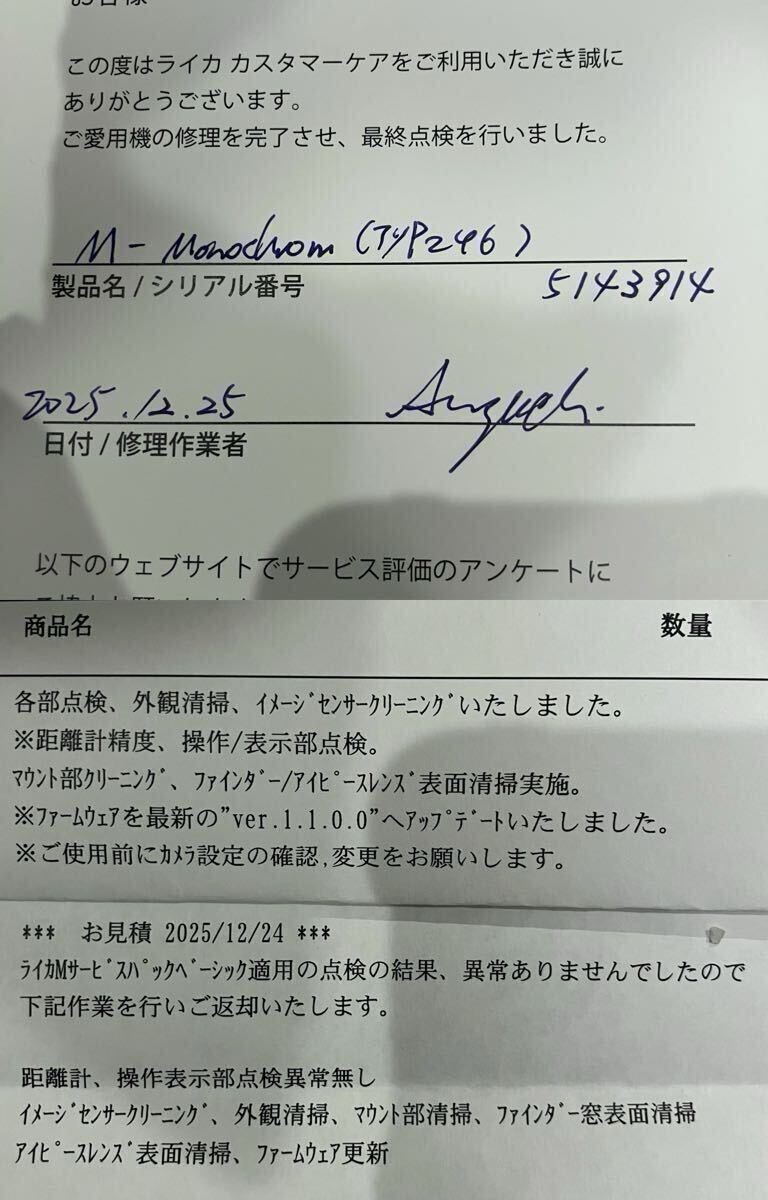 お客様
この度はライカ カスタマーケアをご利用いただき誠に
ありがとうございます。
ご愛用機の修理を完了させ、最終点検を行いました。
M-Monochrom (TYP246)
製品名 / シリアル番号
5143914
2025.12.25
日付 / 修理作業者
以下のウェブサイトでサービス評価のアンケートに
商品名 数量
各部点検、外観清掃、ｲﾒｰｼﾞｾﾝｻｰｸﾘｰﾆﾝｸﾞいたしました。
※距離計精度、操作/表示部点検。
ﾏｳﾝﾄ部ｸﾘｰﾆﾝｸﾞ、ﾌｧｲﾝﾀﾞｰ/ｱｲﾋﾟｰｽﾚﾝｽﾞ表面清掃実施。
※ﾌｧｰﾑｳｪｱを最新の"ver.1.1.0.0"へｱｯﾌﾟﾃﾞｰﾄいたしました。
※ご使用前にｶﾒﾗ設定の確認,変更をお願いします。
*** お見積 2025/12/24 ***
ﾗｲｶMｻｰﾋﾞｽﾊﾟｯｸﾍﾞｰｼｯｸ適用の点検の結果、異常ありませんでしたので
下記作業を行いご返却いたします。
距離計、操作表示部点検異常無し
ｲﾒｰｼﾞｾﾝｻｰｸﾘｰﾆﾝｸﾞ、外観清掃、ﾏｳﾝﾄ部清掃、ﾌｧｲﾝﾀﾞｰ窓表面清掃
ｱｲﾋﾟｰｽﾚﾝｽﾞ表面清掃、ﾌｧｰﾑｳｪｱ更新